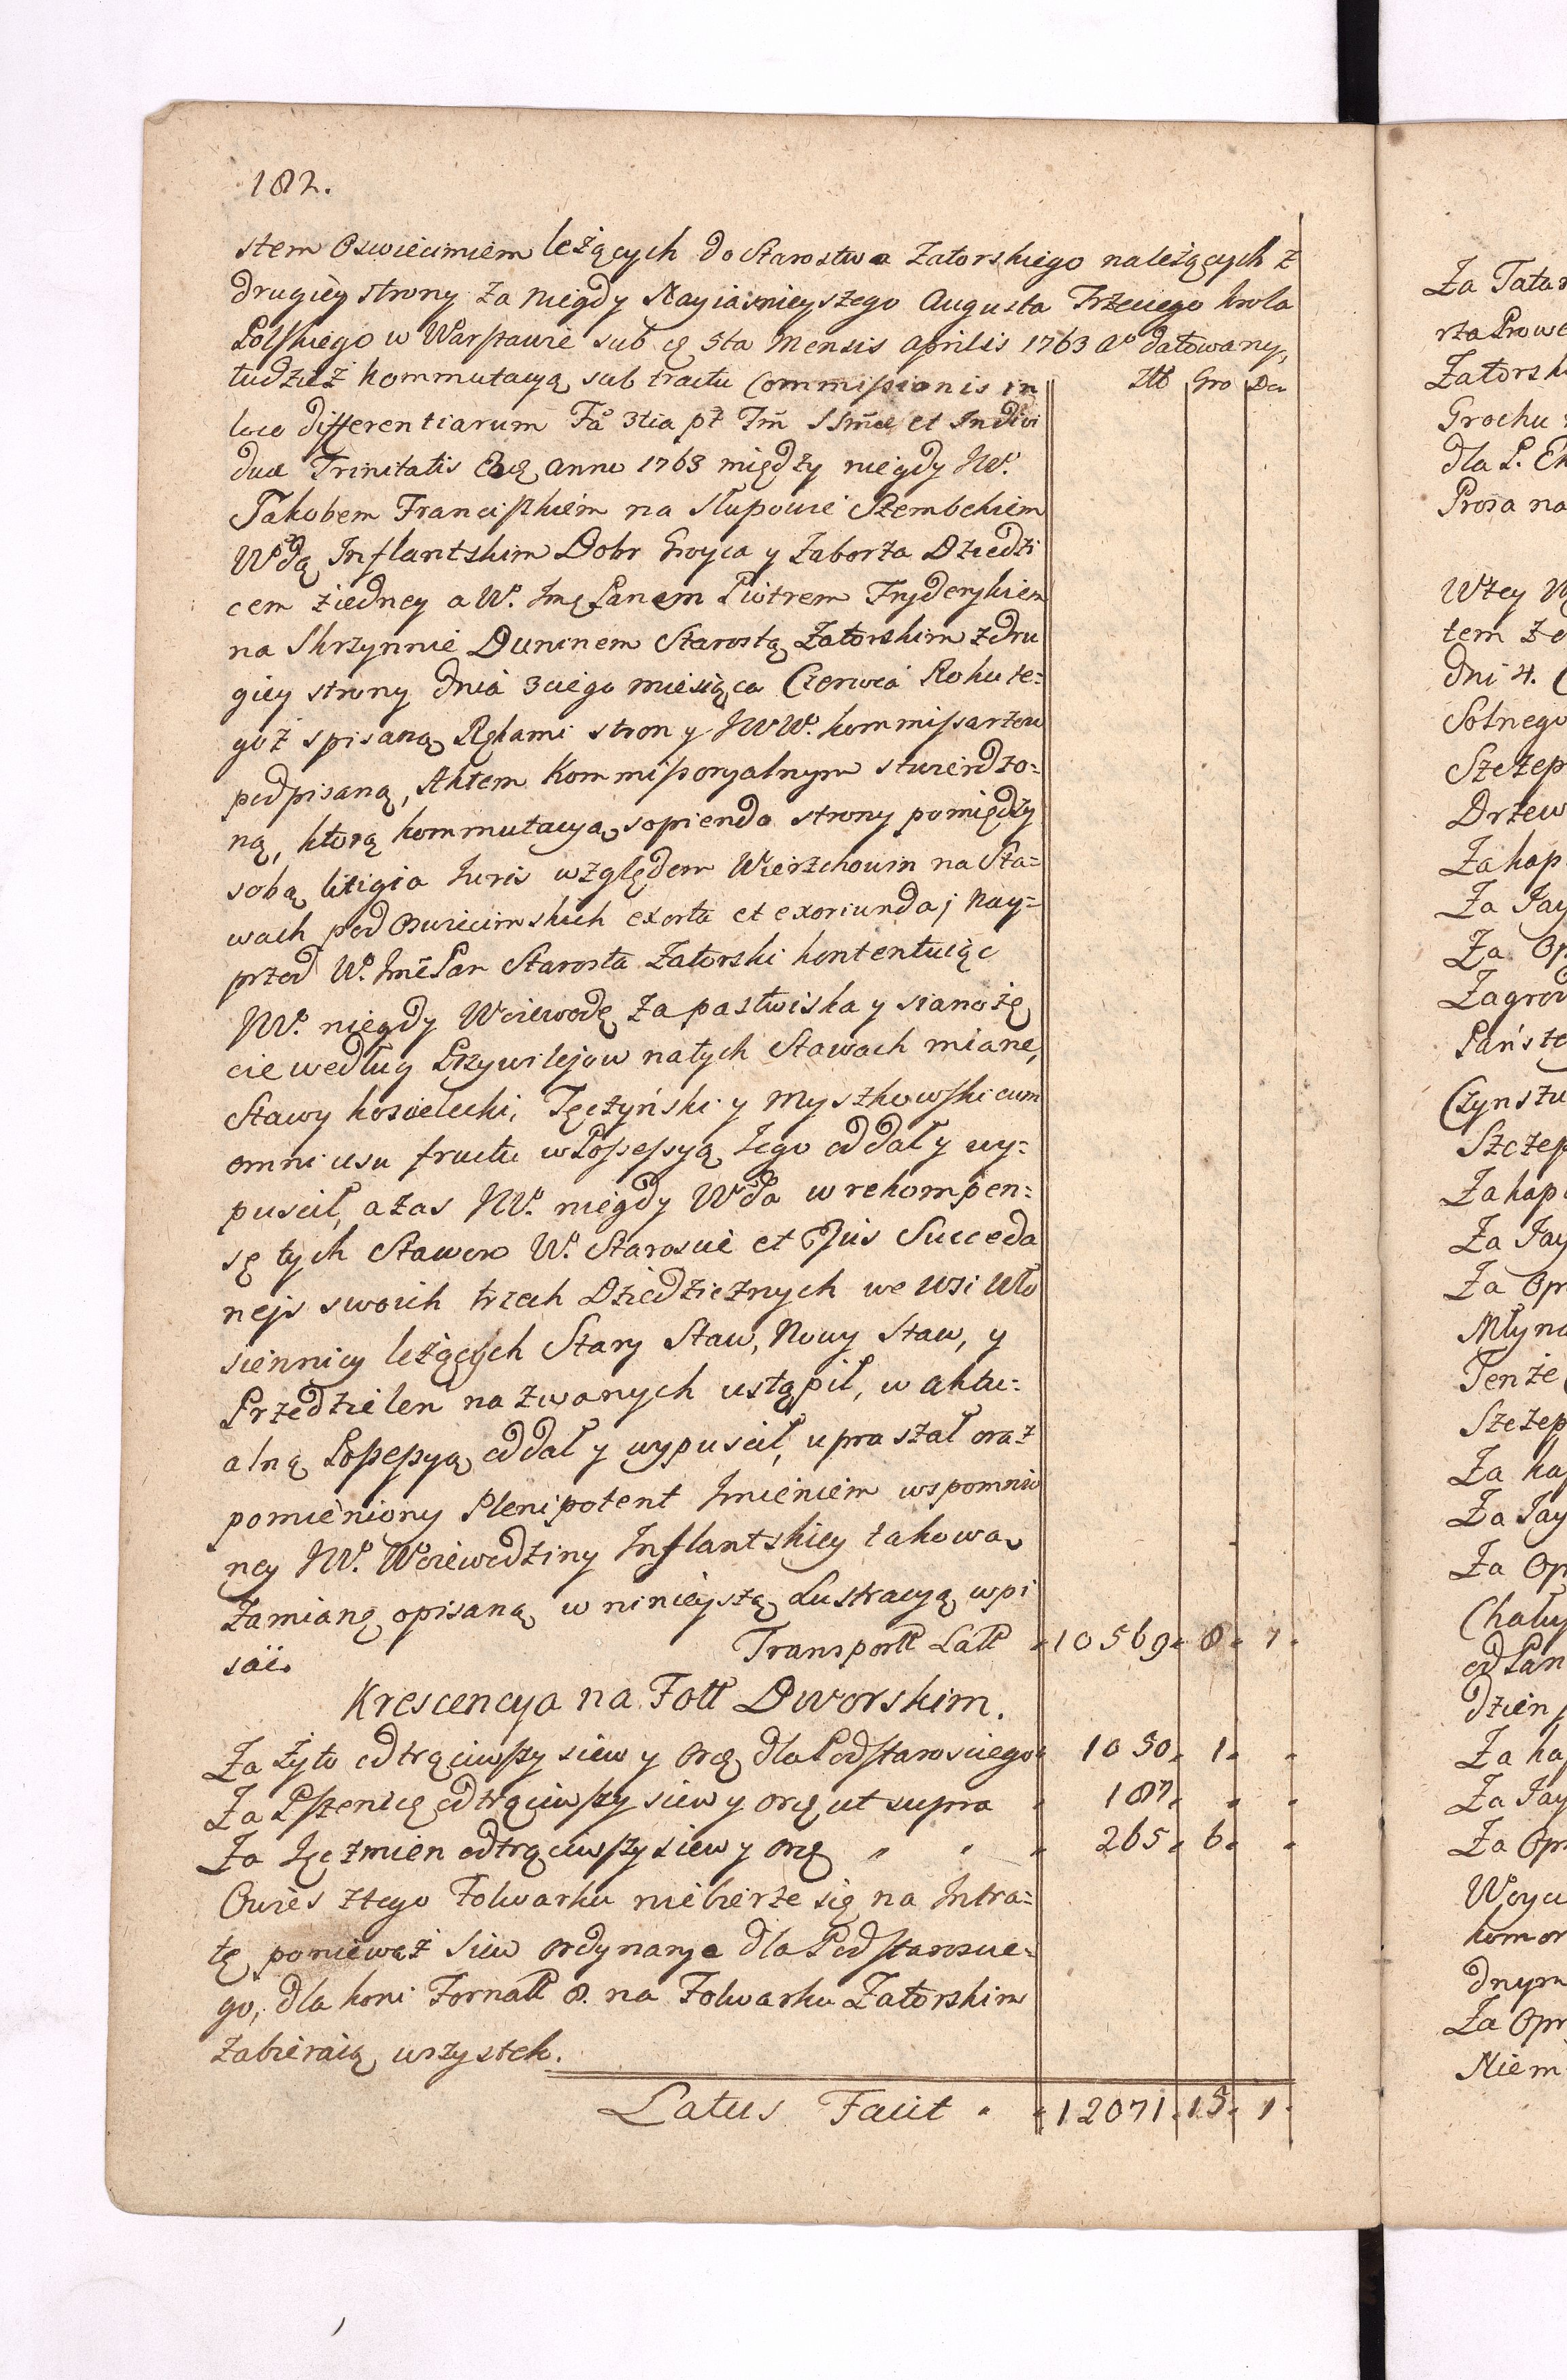 182.
stem Oswiecimiem leżących do Starostwa Zatorskiego należących z
drugiey strony za niegdy Nayiasnieyszego Augusta Trzeciego krola
Polskiego w Warszawie sub 5ta Mensis Aprilis 1763 Ao datowany,
tudziesz kommutacyą sub tractu Commissionis in
Złł Gro De
loco differentiarum Fa 3tia pt Tm SSmæ et Indivi
duæ Trinitatis anno 1763 między niegdy JW.
Jakobem Franciszkiem na Słupowie Szembekiem
Wdą Inflantskim Dobr Groyca y Zaborza Dziedzi
cem ziedney a W. Jmę Panem Piotrem Fryderykiem
na Skrzynnie Duninem Starostą Zatorskim z dru
giey strony dnia 3ciego miesiąca Czerwca Roku te=
goż spisaną Rękami stron y JWW. kommissarzow
podpisaną, Aktem Kommissoryalnym stwierdzo=
ną, ktorą kommutacyą sopienda strony pomiędzy
sobą litigia Juris względem Wierzchowin na Sta=
wach pod Oswiecimskich exorta et exoriunda; Nay=
przod W. Jmć Pan Starosta Zatorski kontentuiąc
JW. niegdy Woiewodę za pastwiska y sianożę
cie według Przywilejow na tych Stawach miane,
Stawy koscielecki, Tęczyński y Myszkowski cum
omni usu fructu w Possessyą Jego oddał y wy=
puscił, a zas JW. niegdy Wda w rekompen=
sę tych Stawow W. Staroscie et Ejus Succeda
nejs swoich trzech Dziedzicznych we wsi Wło
siennicy leżących Stary Staw, Nowy Staw, y
Przedzielen nazwanych ustąpił, w aktu=
alną Possessyą oddał y wypuscił, upraszał oraz
pomieniony Plenipotent Jmieniem wspomnio
ney JW. Woiewodziny Inflantskiey takową
Zamianę opisaną w ninieyszą Lustracyą wpi
sać.
Transportt Latt 10569. 8. 1.
Krescencya na Foll Dworskim.
Za Żyto odtrąciwszy siew y Orę dla Podstarosciego 1050. 1.
Za Pszenicę odtrąciwszy siew y orę ut supra 187.
Za Jęczmien odtrąciwszy siew y orę 265. 6.
Owies z tego Folwarku nie bierze się na Intra=
tę ponieważ siew ordynarya dla Podstaroscie=
go, dla koni Fornall 8. na Folwarku Zatorskim
zabieraią wszystek.
Latus Facit 12071. 15. 1.